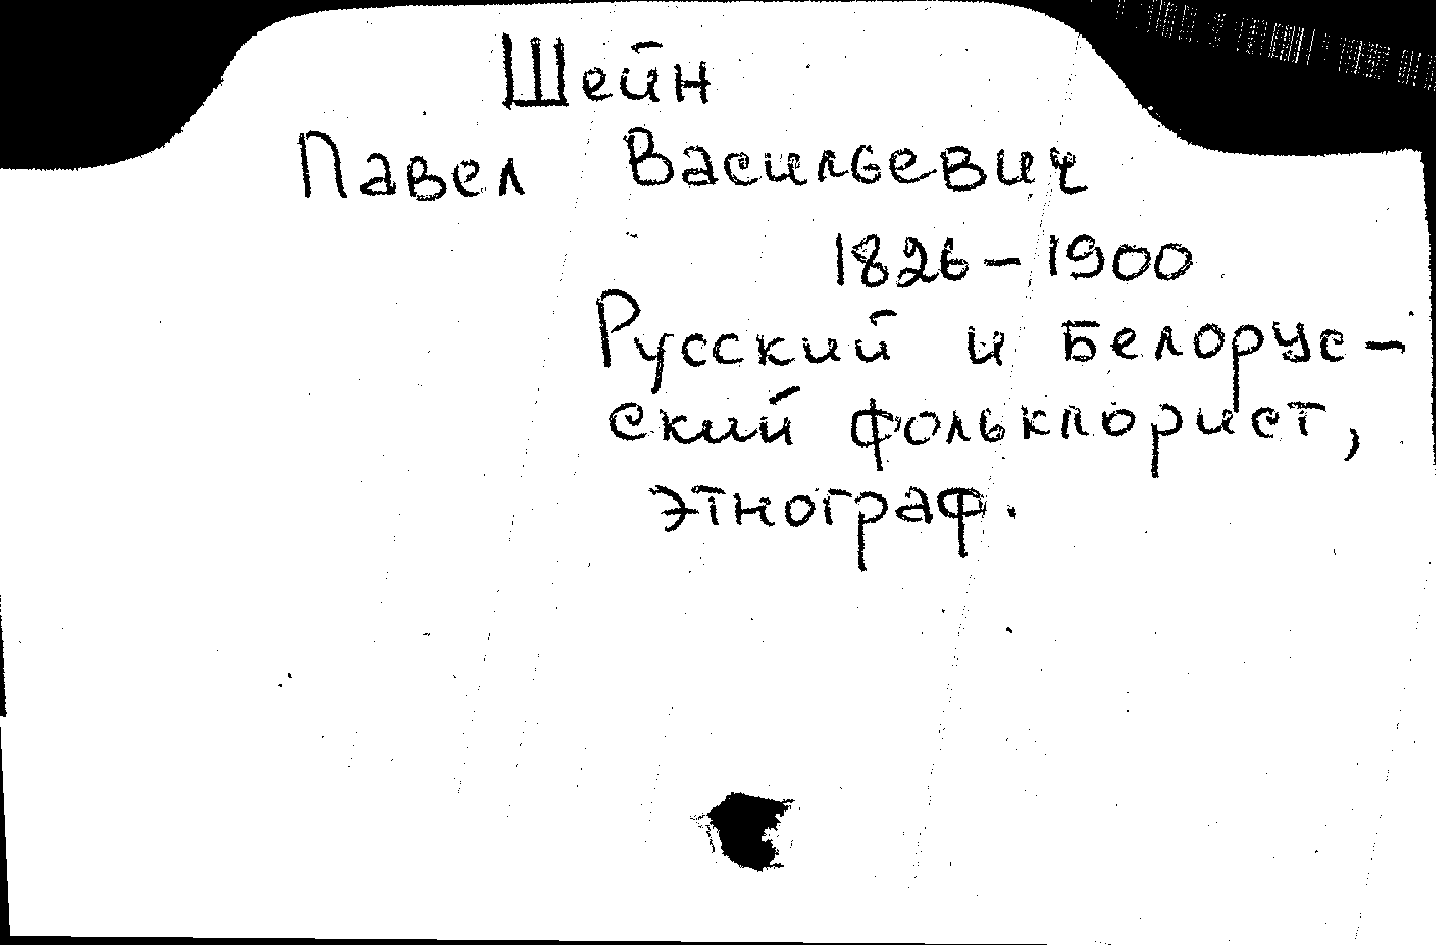 Шейн
Павел Васильевич
1826-1900
Русский и Белорус-
ский фольклорист,
этнограф.